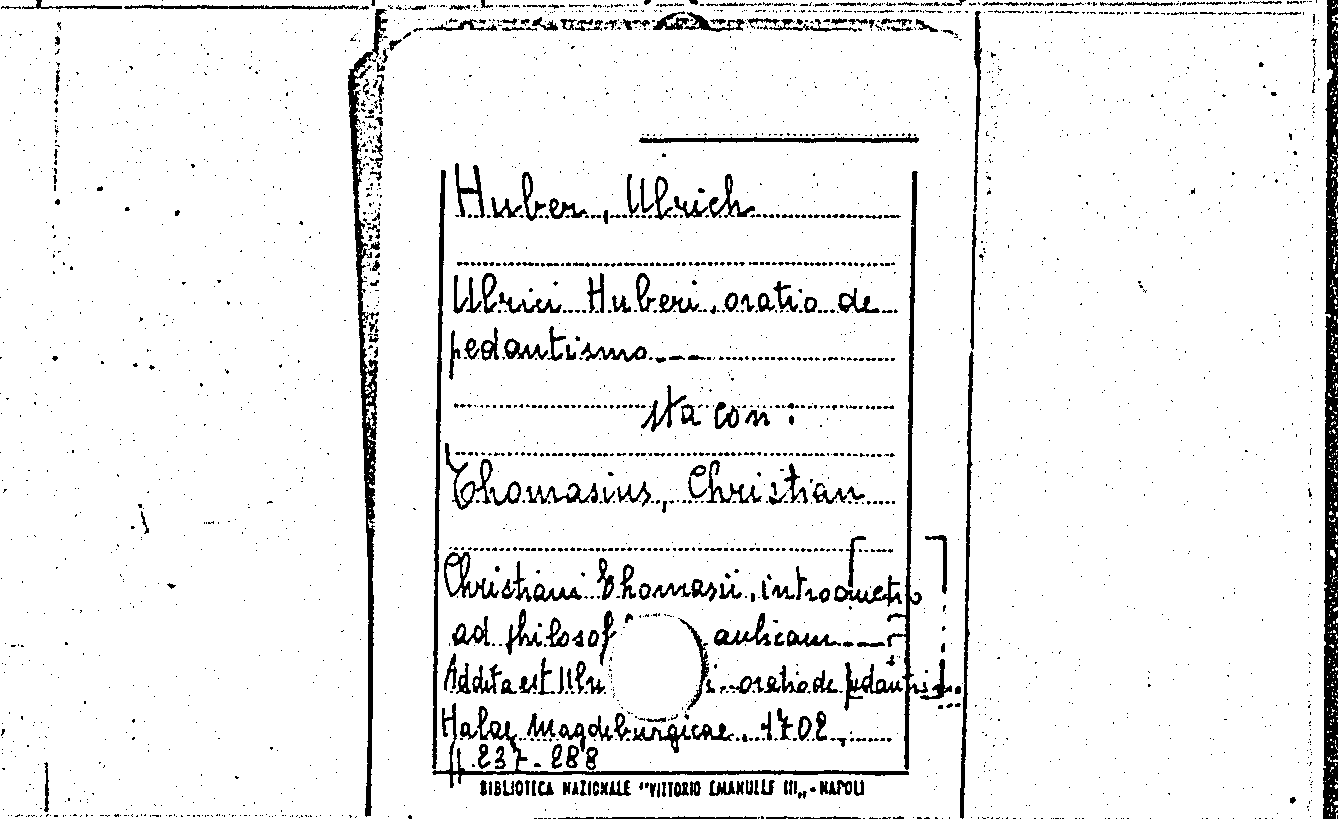 Huber, Ulrich
Ulrici Huberi, oratio de
pedantismo---
sta con:
Thomasius, Christian
Christiani Thomasii, introductio
ad philosof aulicam----
Addita est Ulri i oratio de pedantis...
Halae Magdeburgicae, 1702,
pp. 237-288
BIBLIOTECA NAZIONALE "VITTORIO EMANUELE III„ - NAPOLI